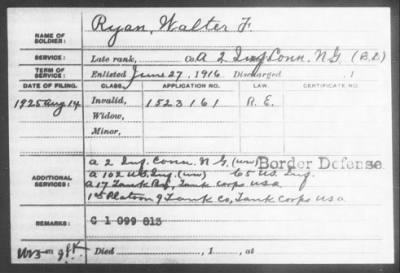 NAME OF SOLDIER: Ryan, Walter F.
SERVICE: Late rank, Co A 2 Inf Conn. N G (B.D)
TERM OF SERVICE: Enlisted June 27, 1916. Discharged , 1
DATE OF FILING. CLASS. APPLICATION NO. LAW. CERTIFICATE NO.
1925 Aug 14 Invalid, 1523161 R. E.
Widow,
Minor,
A 2 Inf. Conn. N. G. (ww) Border Defense
ADDITIONAL SERVICES: A 102 U.S. Inf. (ww) 65 U.S. Inf.
A 17 Tank Bn, Tank Corps USA
1st Platoon 9 Tank Co, Tank Corps USA
REMARKS: C 1 099 813
Died , 1 , at